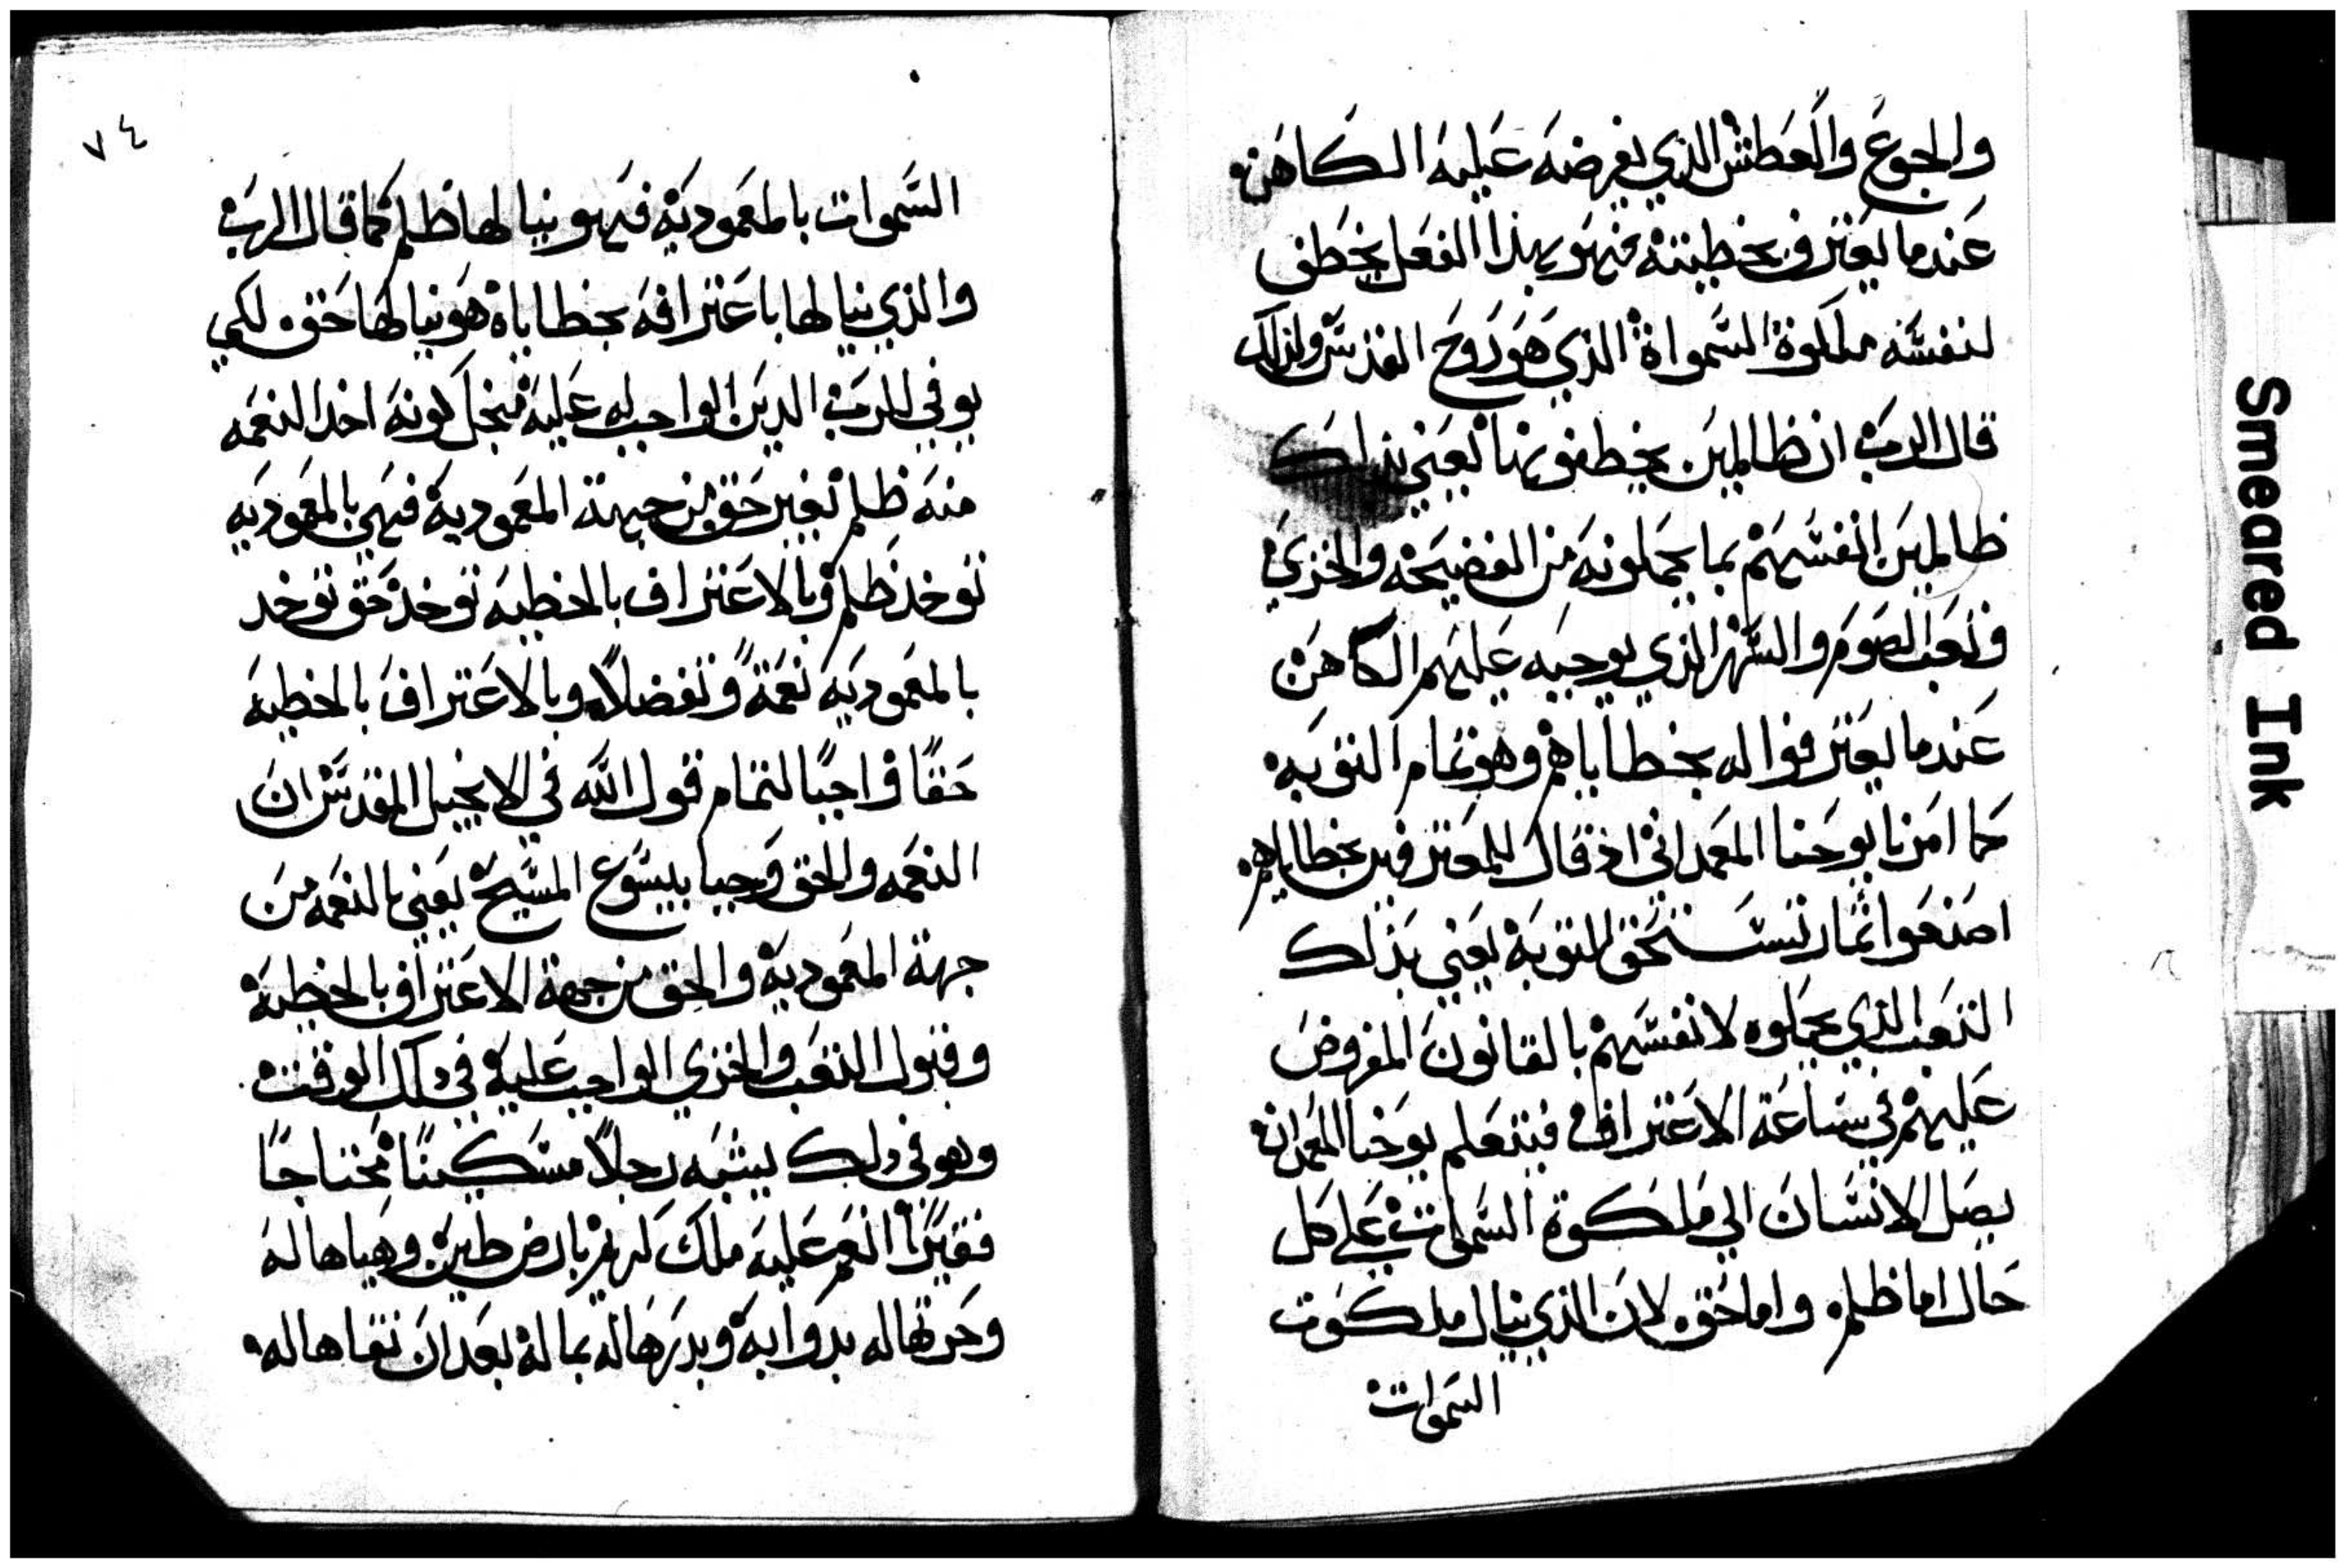 والجوع والعطش الذي يفرضه عليه الكاهن
عندما يعترف بخطيته فهو بهذا الفعل يخطف
لنفسه ملكوة السمواة الذي هو روح القدس ولذلك
قال الرب ان ظالمين يخطفونها يعني بذلك
ظالمين انفسهم بما يحملونه من الفضيحه والخزي
وتعب الصوم والسهر الذي يوجبه عليهم الكاهن
عندما يعترفوا له بخطاياهم وهو تمام التوبه
كما امرنا يوحنا المعمداني اذ قال للمعترفين بخطاياهم
اصنعوا ثمار تستحق للتوبة يعني بذلك
التعب الذي يحملوه لانفسهم بالقانون المفروض
عليهم في ساعة الاعتراف فبتعليم يوحنا المعمدان
يصل الانسان الي ملكوة السموات علي كل
حال اما ظلم واما حق لان الذي ينال ملكوت
السموات
٧٤
السموات بالمعمودية فهو ينالها ظلم كما قال الرب
والذي ينالها باعترافه بخطاياه هو ينالها حق لكي
يوفي للرب الدين الواجب له عليه من كونه اخد النعمه
منه ظلم بغير حق من جهة المعمودية فهي بالمعموديه
توخذ ظلم وبالاعتراف بالخطيه توخذ حق توخد
بالمعموديه نعمةً وتفضلاً وبالاعتراف بالخطيه
حقًا واجبًا لتمام قول الله في الانجيل المقدس ان
النعمه والحق وجبا بيسوع المسيح يعني بالنعمه من
جهة المعمودية والحق من جهة الاعتراف بالخطية
وقبول التعب والخزي الواجب عليه في ذلك الوقت
وهو في ذلك يشبه رجلاً مسكينًا محتاجًا
فقيرًا انعم عليه ملك كريم بارض طين وهياها له
وحرتها له بدوابه وبدرها له بماله بعد ان نقاها له
Smeared Ink